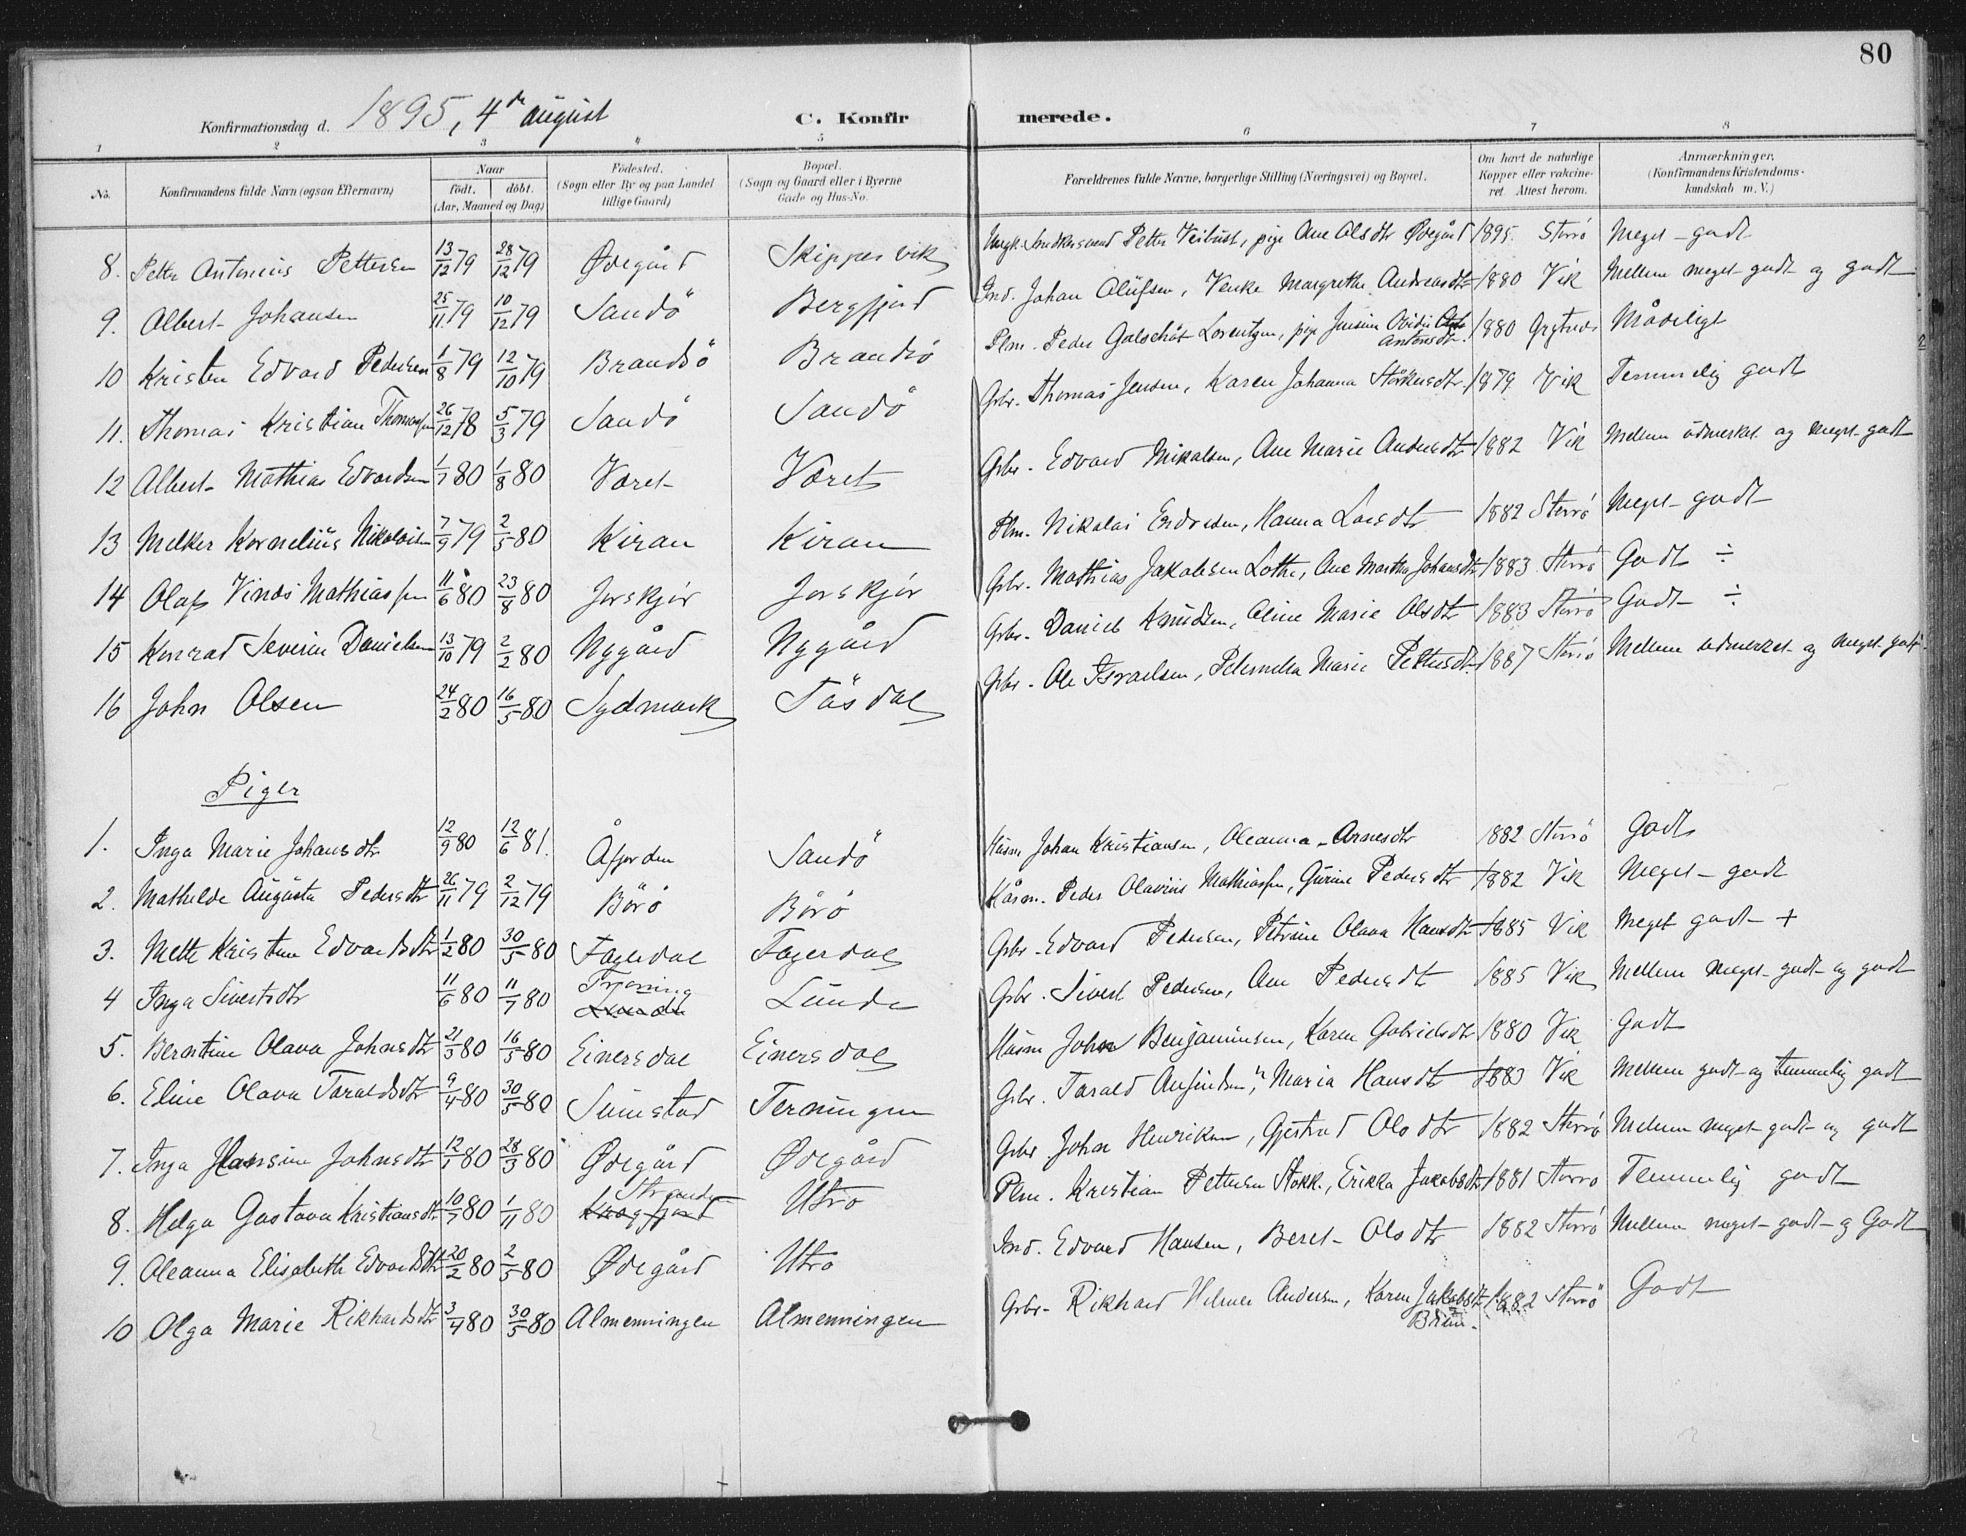 80
Konfirmationsdag d. 1895, 4de august
C. Konfirmerede.
1 2 3 4 5 6 7 8
No. Konfirmandens fulde Navn (ogsaa Efternavn) Naar født. døbt. (Aar, Maaned og Dag) Fødested. (Sogn eller By og paa Landet tillige Gaard) Bopæl. (Sogn og Gaard eller i Byerne Gade og Hus-No. Forældrenes fulde Navne, borgerlige Stilling (Næringsvei) og Bopæl. Om havt de naturlige Kopper eller vakcineret. Attest herom. Anmærkninger. (Konfirmandens Kristendomskundskab m. V.)
8. Petter Antonius Pettersen 13/12 79 28/12 79 Ødegård Skippervik Petter Veibust, pige Ane Olsdtr Ødegård 1895 Storrö Meget godt
9. Albert Johansen 25/11 79 10/12 79 Sandö Bergfjord Ind. Johan Olüfsen, Venke Margrethe Andreasdtr 1880 Vik Mellem meget godt og godt
10 Kristen Edvard Pedersen 1/8 79 12/10 79 Brandsö Brandsö Plm. Peder Lorentzen, pige Jensine Antonsdtr. 1880 Mådeligt
11. Thomas Kristian Thomassen 26/12 78 5/3 79 Sandö Sandö Gbr. Thomas Jensen, Karen Johanna 1879 Vik Temmelig godt
12 Albert Mathias Edvardsen 1/7 80 1/8 80 Været Været Gbr. Edvard Mikalsen, Ane Marie Andersdtr 1882 Vik Mellem udmerket og meget godt
13 Melker Kornelius Nikolaisen 7/9 79 2/5 80 Kiran Kiran Plm. Nikolai Endresen, Hanna Larsdtr 1882 Storrö Meget godt
14 Olaf Mathiassen 11/6 80 23/8 80 Jørskjør Jørskjør Gbr. Mathias Jakobsen Lothe, Ane Martha Johansdtr 1883 Storrö Godt ÷
15 Konrad Severin Danielsen 13/10 79 2/2 80 Nygård Nygård Gbr. Daniel Knudsen, Oline Marie Olsdtr 1883 Storrö Godt ÷
16 John Olsen 24/2 80 16/5 80 Sydmark Tåsdal Gbr. Ole Israelsen, Peternella Marie Pettersdtr. 1887 Storrö Mellem udmerket og meget godt.
Piger
1. Inga Marie Johansdtr 12/9 80 12/6 81. Åfjorden Sandö Husm Johan Kristiansen, Oleanna Arnesdtr 1882 Storrö Godt
2. Mathilde Augusta Pedersdtr 26/11 79 2/12 79 Börö Börö Husm. Peder Olavius Mathiassen, Gurine Pedersdtr 1882 Vik Meget godt
3. Mette Kristine Edvardsdtr 1/2 80 30/5 80 Fagerdal Fagerdal Gbr. Edvard Pedersen, Petrine Olava Hansdtr 1885 Vik Meget godt +
4 Inga Sivertsdtr 11/6 80 11/7 80 Lunde Gbr. Sivert Pedersen, Ane Pedersdtr 1885 Vik Mellem meget godt og godt
5. Berntine Olava Johnsdtr 21/3 80 16/5 80 Einersdal Einersdal Husm John Benjaminsen, Karen Gabrielsdtr 1880 Vik Godt
6. Eline Olava Taraldsdtr 9/4 80 30/5 80 Sumstad Terningen Gbr. Tarald Anfindsen, Maria Hansdtr 1883 Vik Mellem godt og temmelig godt
7. Inga Hansine Johnsdtr 12/1 80 28/3 80 Ødegård Ødegård Gbr John Henriksen, Gjertrud Olsdtr 1882 Storrö Mellem meget godt og godt
8. Helga Gustava Kristiansdtr 10/7 80 1/11 80 Utro Plm. Kristian Pettersen Stokk., Erikka Jakobsdtr 1881 Storrö Temmelig godt
9. Oleanna Elisabeth Edvardsdtr 20/2 80 2/5 80 Ødegård Utro Ind. Edvard Hansen, Beret Olsdtr 1882 Storrö Mellem meget godt og Godt
10 Olga Marie Rikhardsdtr 3/4 80 30/5 80 Almenningen Almenningen Gbr. Rikhard Hilmer Andersen, Karen Jakobsdtr 1882 Storrö Godt